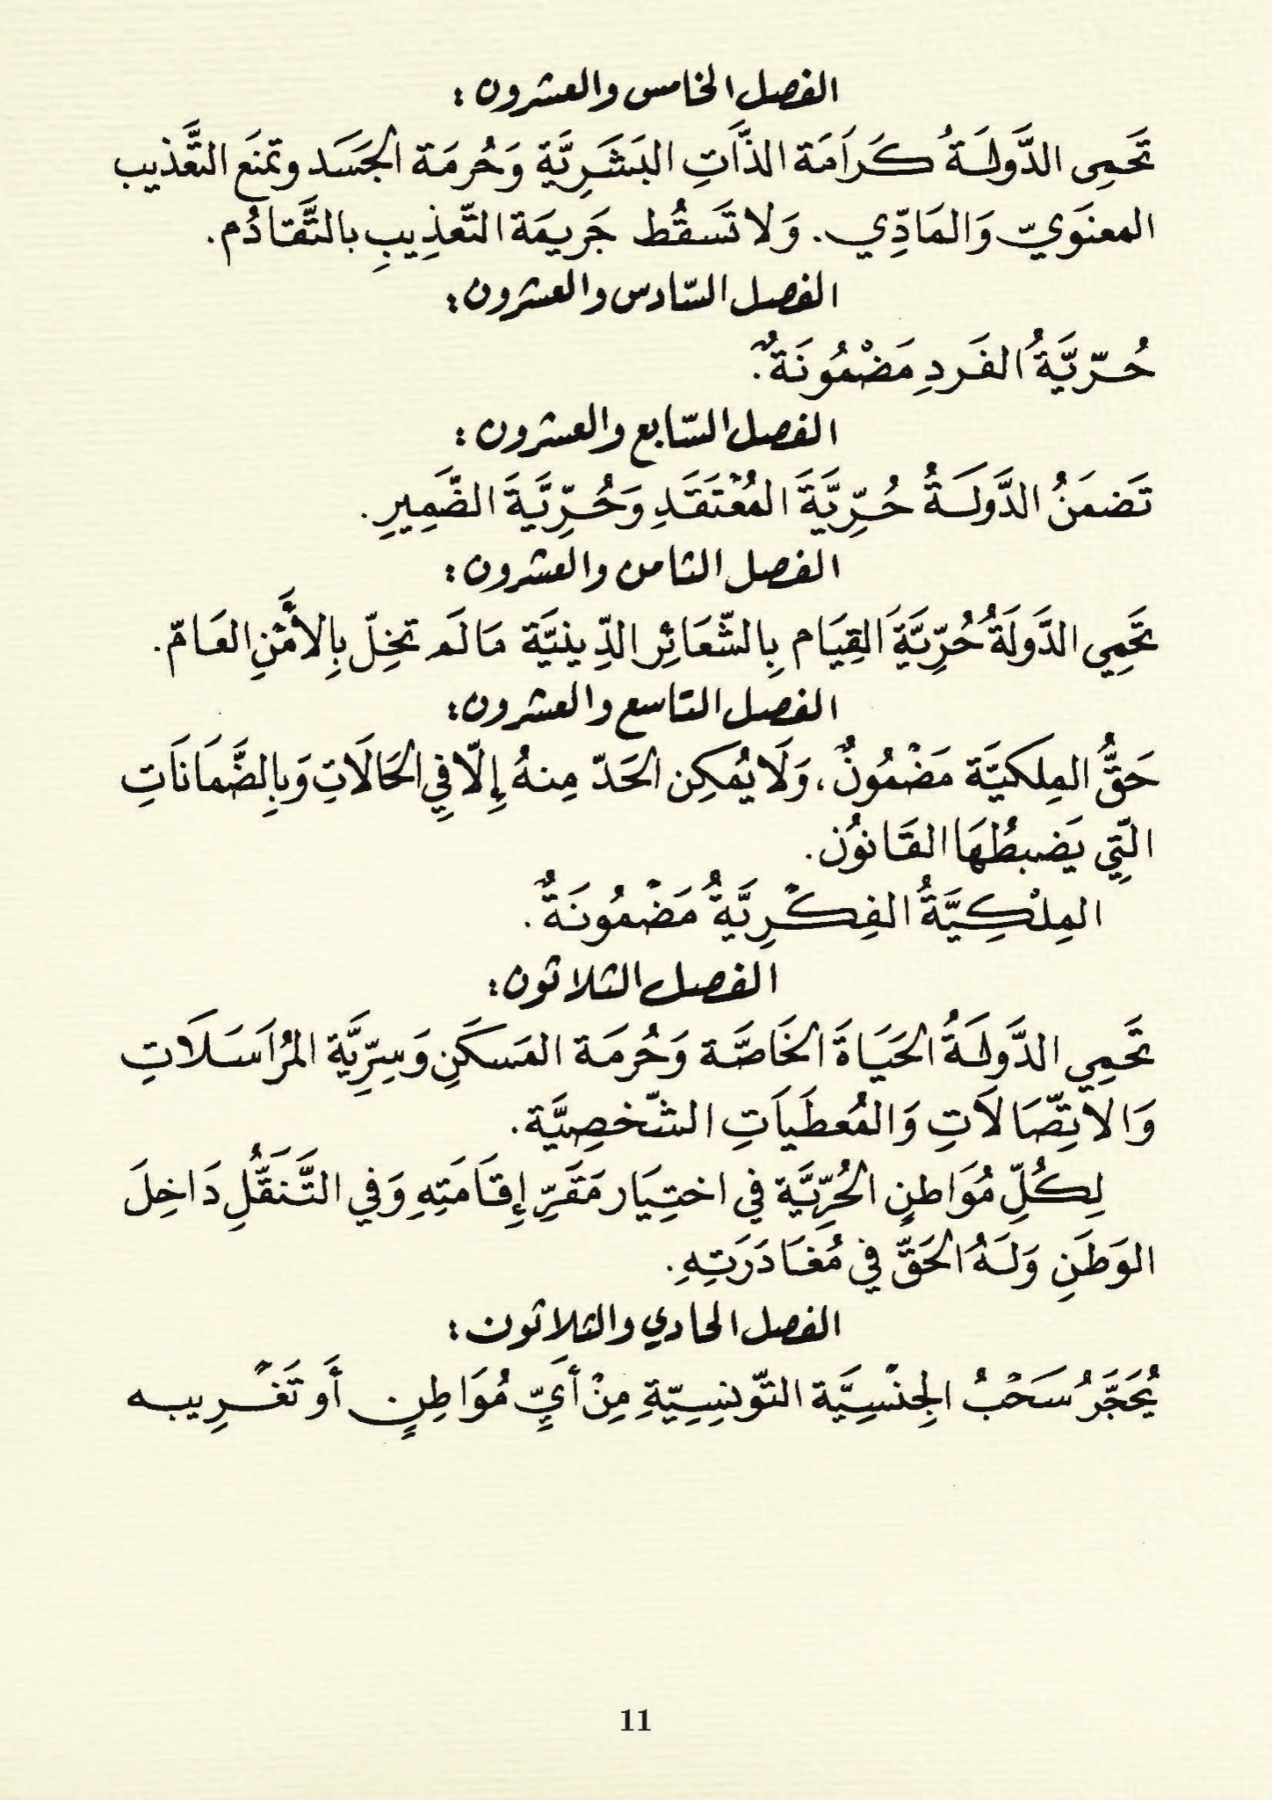 الفصل الخامس والعشرون :
تَحمِى الدَّولَةُ كَرَامَة الذَّاتِ البَشَرِيَّة وَحُرمَة الجَسَد وتمنَع التَّعذيب
المعنَويّ وَالمَادِّي. وَلا تَسقُط جَريمَة التّعذِيبِ بالتَّقادُم.
الفصل السّادس والعشرون :
حُرّيَّةُ الفَردِ مَضْمُونَةٌ.
الفصل السّابع والعشرون :
تَضمَنُ الدَّولَةُ حُرِّيَّةَ المُعْتَقَدِ وَحُرِّيَّةَ الضَّمِيرِ.
الفصل الثامن والعشرون :
تَحمِي الدَّولَةُ حُرِّيَّةَ القِيَام بِالشّعَائِر الدِّينيَّة مَا لَم تخِلّ بِالأَمْنِ العَامّ.
الفصل التاسع والعشرون :
حَقُّ المِلكيَّة مَضْمُونٌ، وَلَا يُمكِن الحَدّ مِنهُ إِلّا فِي الحَالَاتِ وَبِالضَّمَانَاتِ
الّتِي يَضبطُهَا القَانوُن.
المِلْكِيَّةُ الفِكْرِيَّةُ مَضْمُونَةٌ.
الفصل الثلاثون :
تَحمِي الدَّولَةُ الحَيَاةَ الخَاصَّة وَحُرمَة المَسكَنِ وَسِرِّيَّة المُرَاسَلَاتِ
وَالاتِّصَالَاتِ وَالمُعطَيَاتِ الشّخصِيَّة.
لِكُلِّ مُوَاطنٍ الحُرِّيَّة في اختِيَار مَقَرِّ إِقَامَتِهِ وَفي التَّنَقُّلِ دَاخِلَ
الوَطَنِ وَلَهُ الحَقّ في مُغَادَرَتِهِ.
الفصل الحادي والثلاثون :
يُحَجَّرُ سَحْبُ الجِنْسِيَّة التّونسِيّةِ مِنْ أَيِّ مُوَاطِنٍ أَو تَغْرِيبه
11